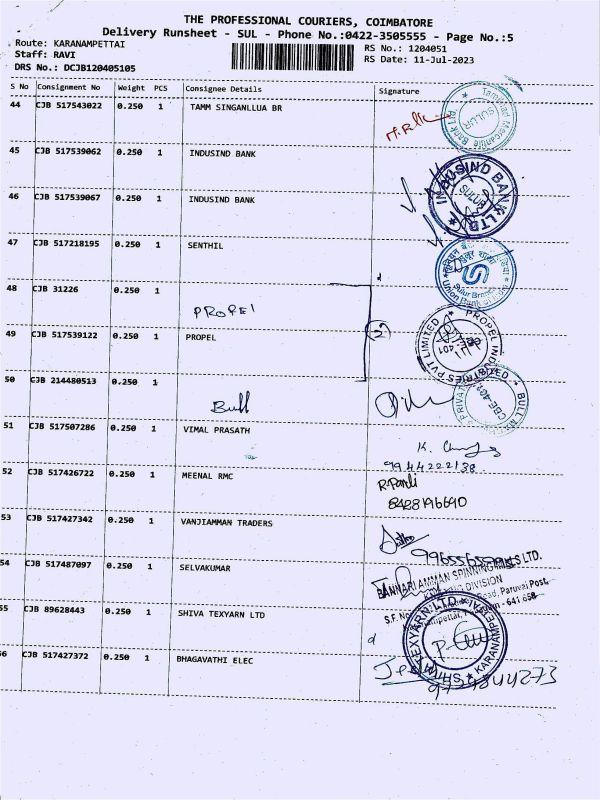 THE PROFESSIONAL COURIERS, COIMBATORE
Delivery Runsheet - SUL - Phone No.:0422-3505555 - Page No.:5
Route: KARANAMPETTAI
RS No.: 1204051
Staff: RAVI
RS Date: 11-Jul-2023
DRS No.: DCJB120405105
S No Consignment No Weight PCS Consignee Details Signature
44 CJB 517543022 0.250 1 TAMM SINGANLLUA BR
SULUR
45 CJB 517539062 0.250 1 INDUSIND BANK
INDUSIND BANK LTD
46 CJB 517539067 0.250 1 INDUSIND BANK
47 CJB 517218195 0.250 1 SENTHIL
Sulur Branch
Union Bank of India
48 CJB 31226 0.250 1
PROPEL
49 CJB 517539122 0.250 1 PROPEL
2
PROPEL INDUSTRIES PVT LIMITED
50 CJB 214480513 0.250 1
Bull
51 CJB 517507286 0.250 1 VIMAL PRASATH
9944222138
52 CJB 517426722 0.250 1 MEENAL RMC
8428196690
53 CJB 517427342 0.250 1 VANJIAMMAN TRADERS
54 CJB 517487097 0.250 1 SELVAKUMAR
BANNARI AMMAN SPINNING MILLS LTD.
DIVISION
Road, Paruvai Post,
55 CJB 89628443 0.250 1 SHIVA TEXYARN LTD
SHIVA TEXYARN LTD
KARANAMPETTAI
56 CJB 517427372 0.250 1 BHAGAVATHI ELEC